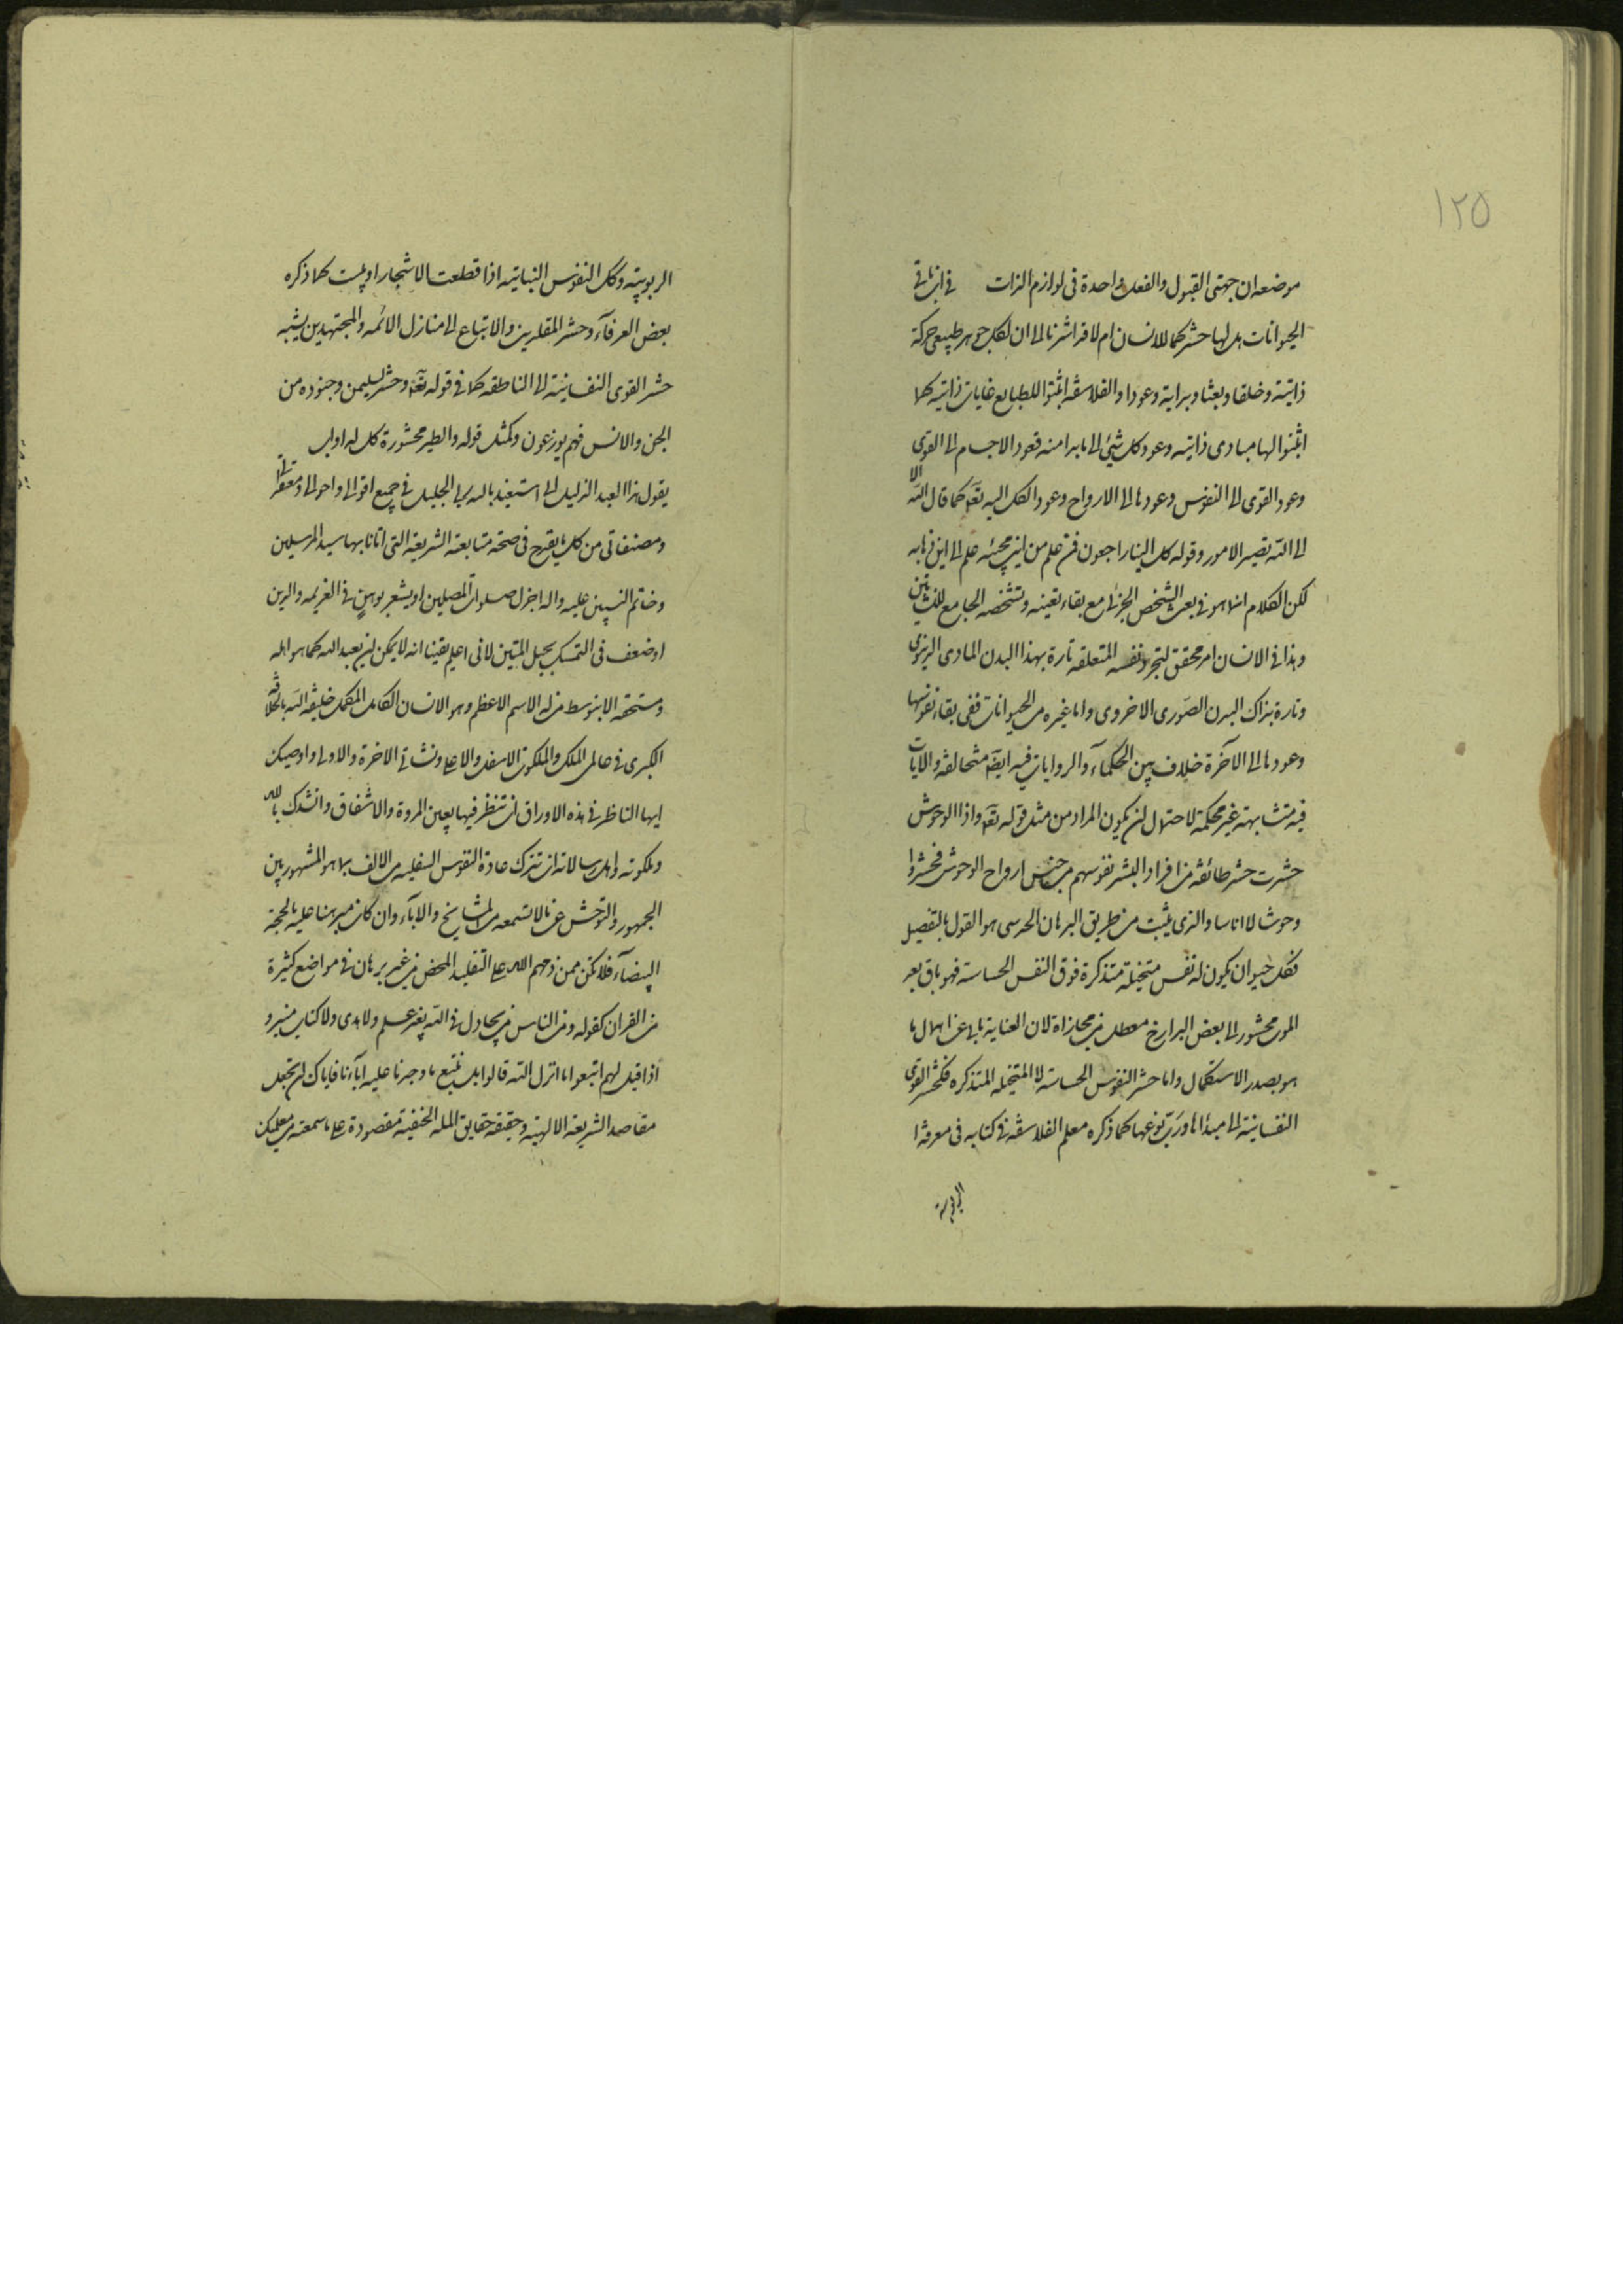 ١٢٥
موضعه ان جهتى القبول والفعل واحدة فى لوازم الذات فى ان باقى
الحيوانات هل لها حشر كما للانسان ام لا قد اشرنا الى ان لكل جوهر طبيعى حركة
ذاتية وخلقا وبعثا وبداية وعودا والفلاسفة اثبتوا للطبايع غايات ذاتية كما
اثبتوا لها مبادى ذاتيه وعود كل شئ الى ما بدا منه فعود الاجسام الى القوى
وعود القوى الى النفوس وعودها الى الارواح وعود الكل اليه تعالى كما قال الله الا
الى الله تصير الامور وقوله كل الينا راجعون فمن علم من اين مجيئه علم الى اين ذهابه
لكن الكلام انما هو فى بعث الشخص الجزئى مع بقاء تعينه وتشخصه الجامع للنشأتين
وهذا فى الانسان امر محقق لتجرد نفسه المتعلقه تارة بهذا البدن المادى الدنيوى
وتارة بذاك البدن الصورى الاخروى واما غيره من الحيوانات ففى بقاء نفوسها
وعودها الى الآخرة خلاف بين الحكمآء والروايات فيه ايضا متخالفة والايات
فيه متشابهة غير محكمة لاحتمال ان يكون المراد من مثل قوله تعالى واذا الوحوش
حشرت حشر طائفة من افراد البشر نفوسهم من جنس ارواح الوحوش فحشروا
وحوشا لا اناسا والذى يثبت من طريق البرهان الحدسى هو القول بالتفصيل
فكل حيوان يكون له نفس متخيلة متذكرة فوق النفس الحساسة فهو باق بعد
الموت محشور الى بعض البرازخ معطل من مجازاة لان العناية تابى عن اهمال ما
هو بصدد الاستكمال واما حشر النفوس الحساسة لا المتخيله المتذكره فكحشر القوى
النفسانية الى مبدأها ورب نوعها كما ذكره معلم الفلاسفة فى كتابه فى معرفة
الربوبية
الربوبية وكل النفوس النباتية اذا قطعت الاشجار او يبست كما ذكره
بعض العرفآء وحشر المقلدين والاتباع الى منازل الائمه والمجتهدين يشبه
حشر القوى النفسانية الى الناطقه كما فى قوله تعالى وحشر لسليمن وجنوده من
الجن والانس فهم يوزعون وكمثل قوله والطير محشورة كل له اواب
يقول هذا العبد الذليل انى استعيذ بالله ربى الجليل فى جميع اقوالى واحوالى ومعتقداتى
ومصنفاتى من كل ما يقدح فى صحة متابعة الشريعة التى اتانا بها سيد المرسلين
وخاتم النبيين عليه واله اجزل صلوات المصلين او يشعر بوهن فى العزيمه والدين
او ضعف فى التمسك بحبل المتين لانى اعلم يقينا انه لا يمكن لاحد ان يعبد الله كما هو اهله
ومستحقه الا بتوسط من له الاسم الاعظم وهو الانسان الكامل المكمل خليفة الله بالخلافة
الكبرى فى عالمى الملك والملكوت الاسفل والاعلى ونشاتى الاخرة والاولى واوصيك
ايها الناظر فى هذه الاوراق ان تنظر فيها بعين المروة والاشفاق وانشدك بالله
وملكوته واهل رسالاته ان تترك عادة النفوس السفليه من الالف بما هو المشهور بين
الجمهور والتوحش عن ما لا تسمعه من المشايخ والابآء وان كان مبرهنا عليه بالحجة
البيضآء فلا تكن ممن ذمهم الله على التقليد المحض من غير برهان فى مواضع كثيرة
من القران كقوله ومن الناس من يجادل فى الله بغير علم ولا هدى ولا كتاب منير و
اذا قيل لهم اتبعوا ما انزل الله قالوا بل نتبع ما وجدنا عليه آبآءنا فاياك ان تجعل
مقاصد الشريعة الالهية وحقيقة حقايق المله الحنفية مقصودة على ما سمعته من معلميك